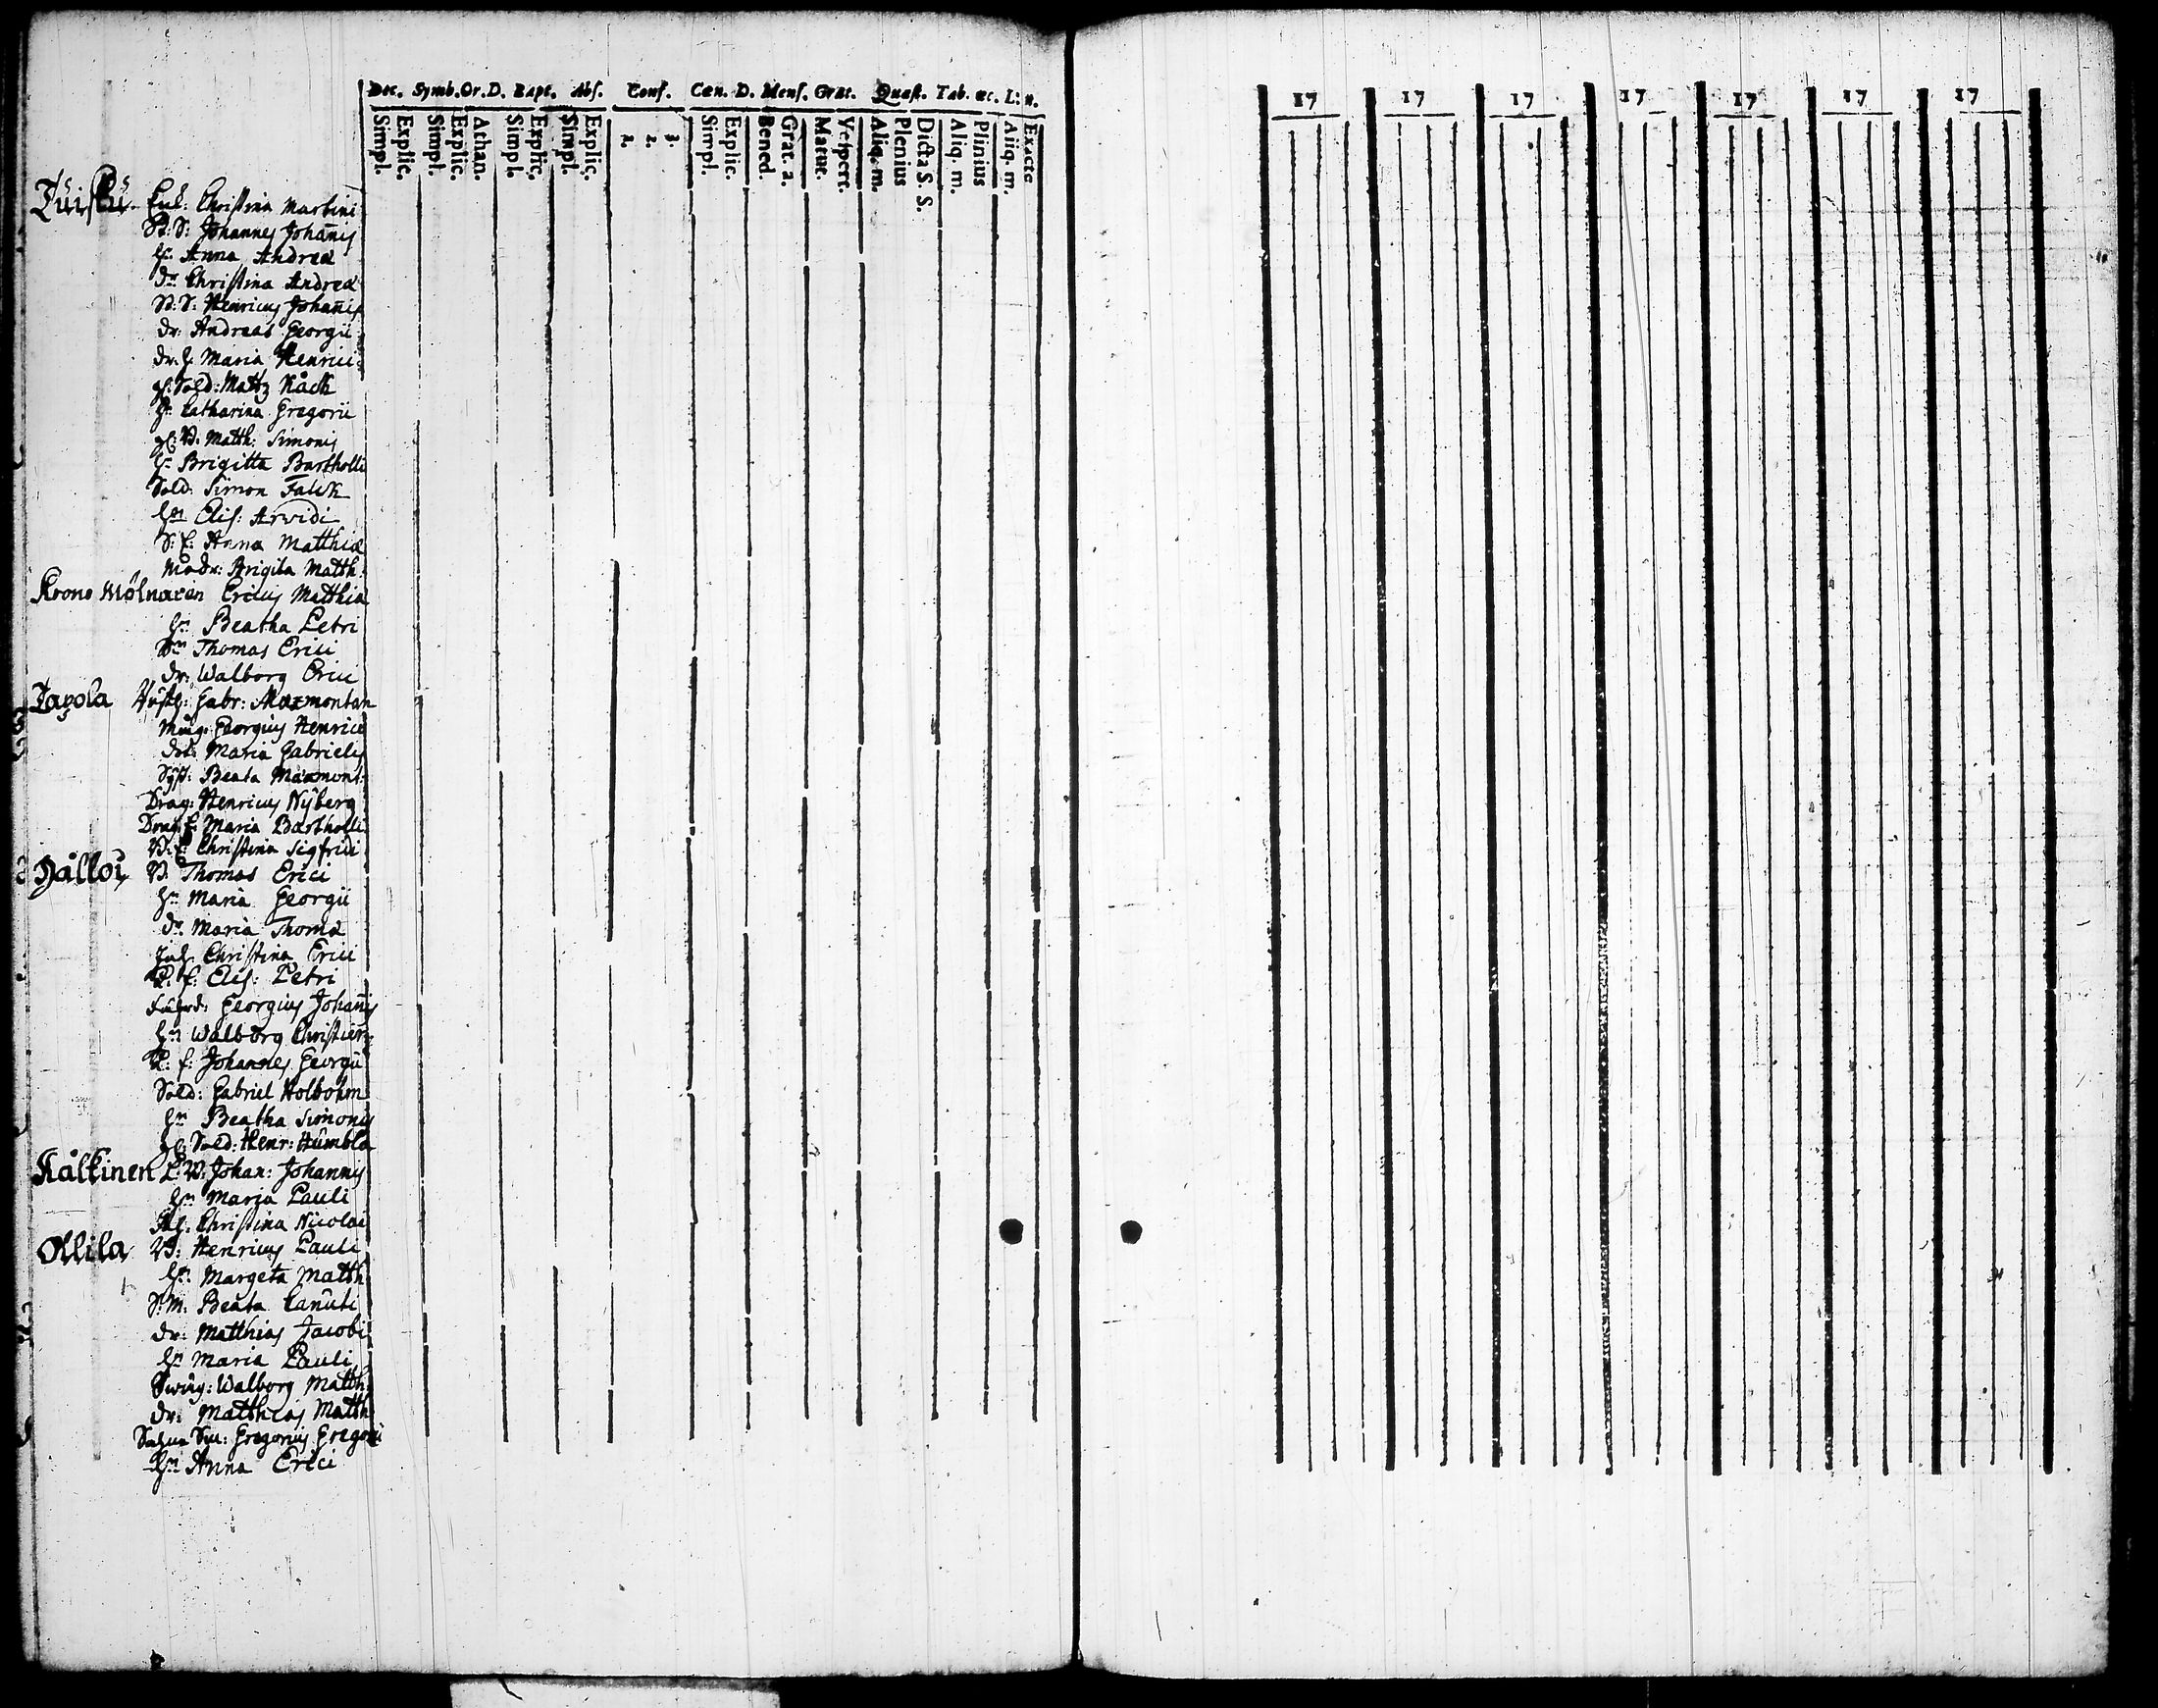 Doc. Symb. Or. D. Bapt. Abs. Conf. Cœn. D. Mens. Grat. Quæst. Tab. œc. L: n.
Simpl. Explic. Simpl. Explic. Athan. Simpl. Explic. Simpl. Explic. 1. 2. 3. Simpl. Explic. Bened. Grat. a. Matut. Vespert. Aliq. m. Plenius Dicta S. S. Aliq. m. Plinius Aliq. m. Exacte
17 17 17 17 17 17 17
Tuisku Enk: Christina Martini
Bd: S: Johannes Johañis
H:n Anna Andreæ
dr Christina Andreæ
Bd: S: Henricus Johañis
dr: Andreas Georgii
dr: h: Maria Henrici
gl: Sold: Mattz Kåck
H:n Catharina Gregorii
gl: B: Matth: Simonis
H:n Brigitta Bartholli
Sold: Simon Falck
H:n Elis: Arvidi
S: E: Anna Matthiæ
Modr: Brigita Matth:
Krono Mölnaren Ericus Matthiæ
H:n Beatha Petri
Sn Thomas Erici
dr: Walborg Erici
Tapola Gabr: Maxmontan
Måg: Georgius Henrici
dot: Maria Gabrielis
Syst: Beata Maxmont:
Drag: Henricus Nÿberg
Drag: E: Maria Bartholli
B: E: Christina Sigfridi
B: Thomas Erici
H:n Maria Georgii
dr. Maria Thomæ
Inh: Christina Erici
R: E: Elis: Petri
Georgius Johañis
H:n Walborg Christiern:
R: f: Johannes Georgii
Sold: Gabriel Holbohm
H:n Beatha Simonis
gl: Sold: Henr: Humbla
Kälkinen L: B: Johan: Johannis
H:n Maria Pauli
Christina Nicolai
Ollila B: Henricus Pauli
H:n Margeta Matth:
S: M: Beata Canuti
dr: Matthias Jacobi
H:n Maria Pauli
Walborg Matth:
dr: Matthias Matth:
Gregorius Gregorii
H:n Anna Erici